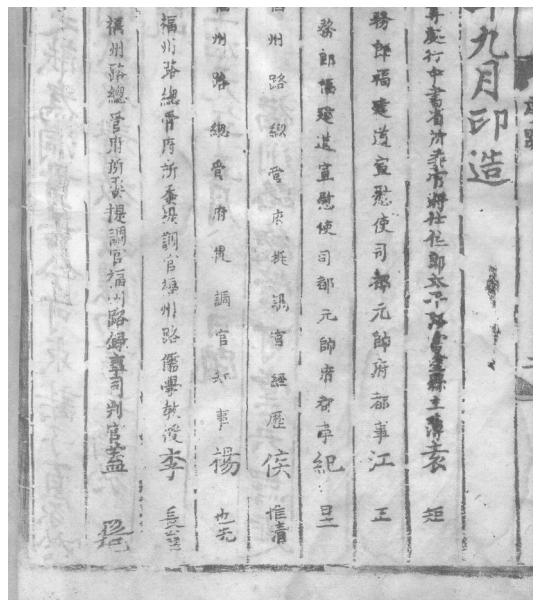 年九月印造
等處行中書省所委官將仕佐郎太平路當塗縣主簿袁 矩
務郎福建道宣慰使司都元帥府都事江 正
務郎福建道宣慰使司都元帥府都事紀
福州路緫管府提調官經歷侯 惟清
福州路緫管府提調官知事楊 也先
福州路緫管府所委提調官福州路儒學教授李 長
福州路緫管府所委提調官福州路錄事司判官蓋